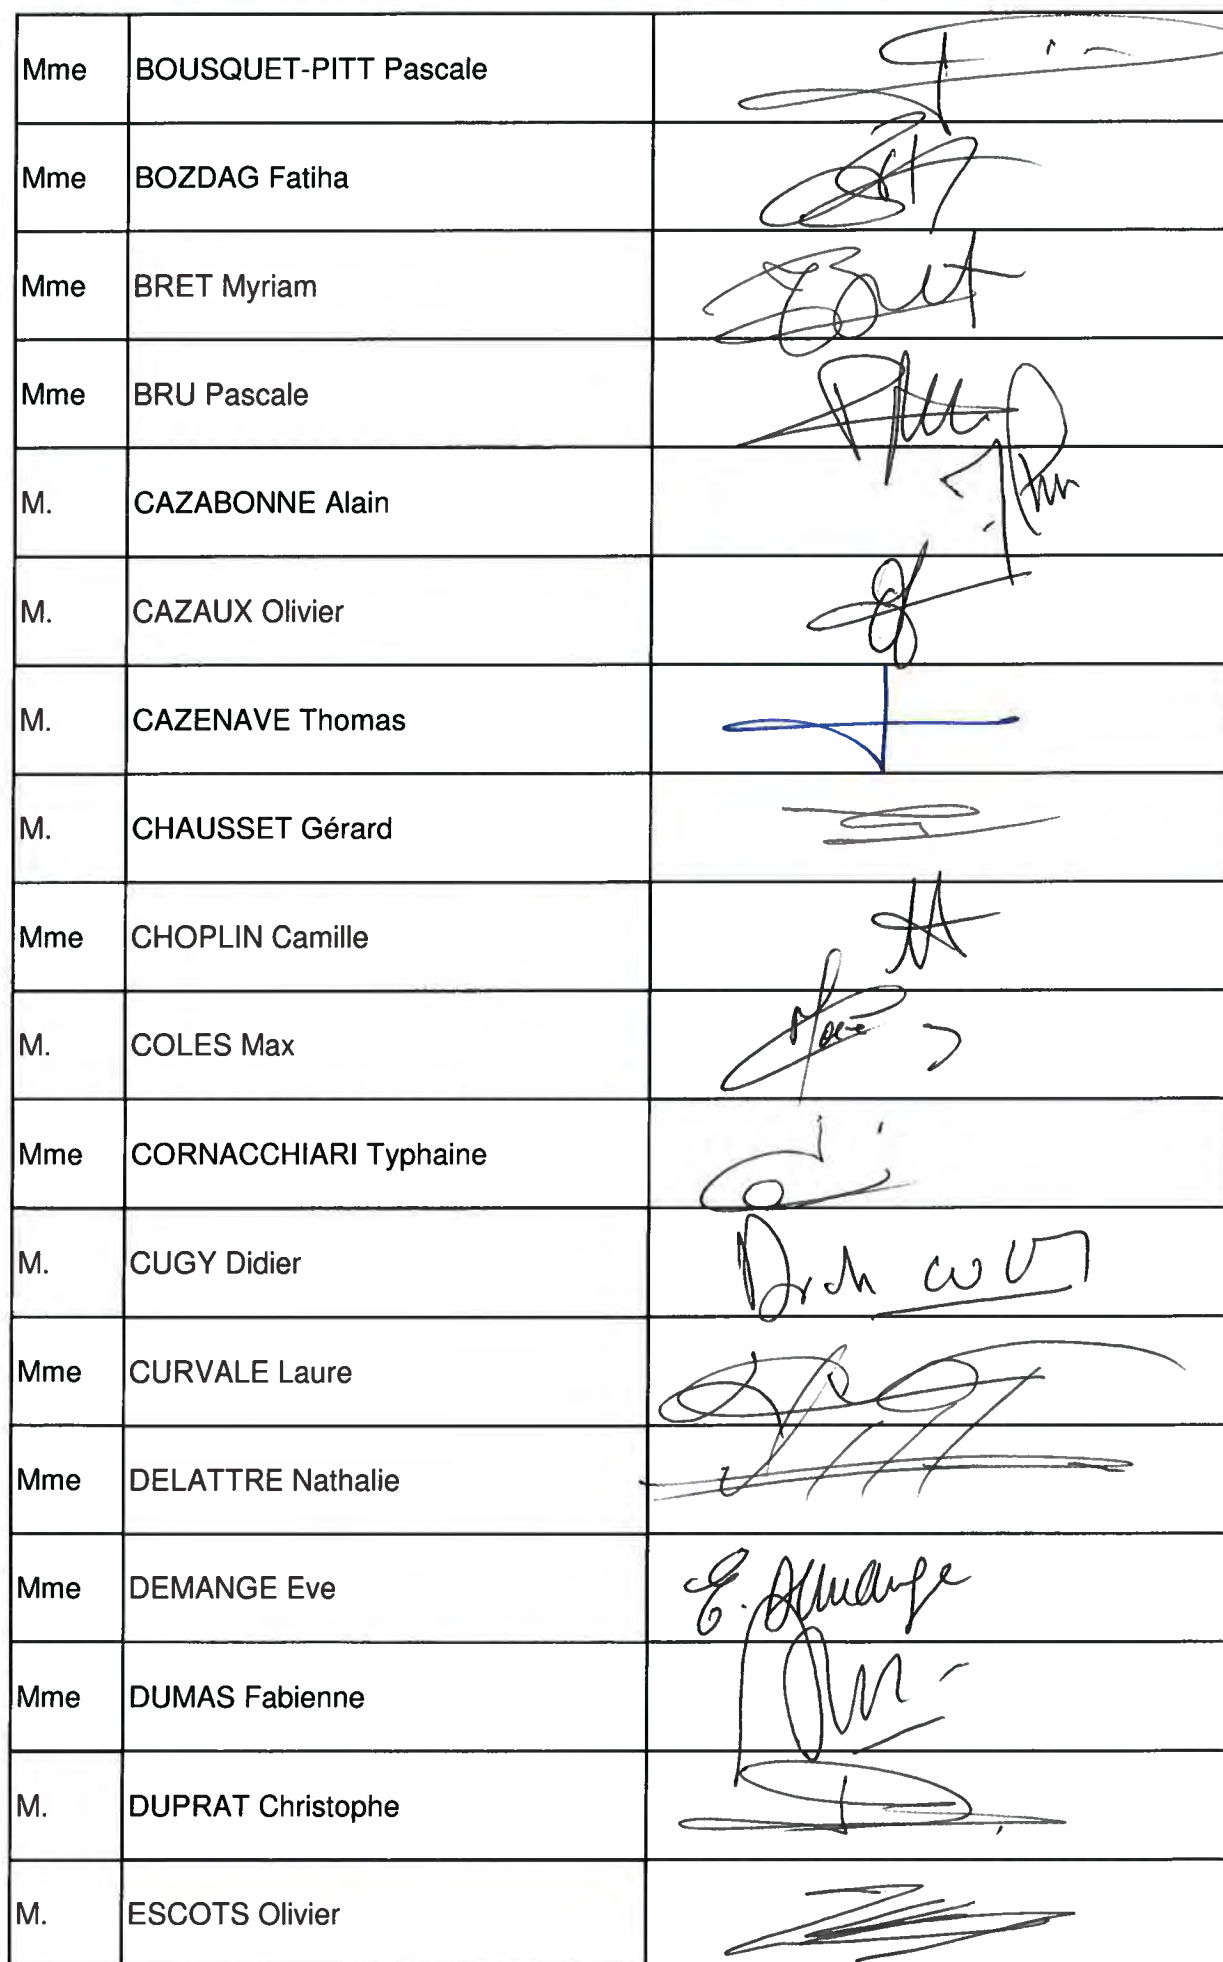 Mme BOUSQUET-PITT Pascale
Mme BOZDAG Fatiha
Mme BRET Myriam Bret
Mme BRU Pascale
M. CAZABONNE Alain
M. CAZAUX Olivier
M. CAZENAVE Thomas
M. CHAUSSET Gérard
Mme CHOPLIN Camille
M. COLES Max
Mme CORNACCHIARI Typhaine
M. CUGY Didier
Mme CURVALE Laure
Mme DELATTRE Nathalie
Mme DEMANGE Eve E. Demange
Mme DUMAS Fabienne
M. DUPRAT Christophe
M. ESCOTS Olivier